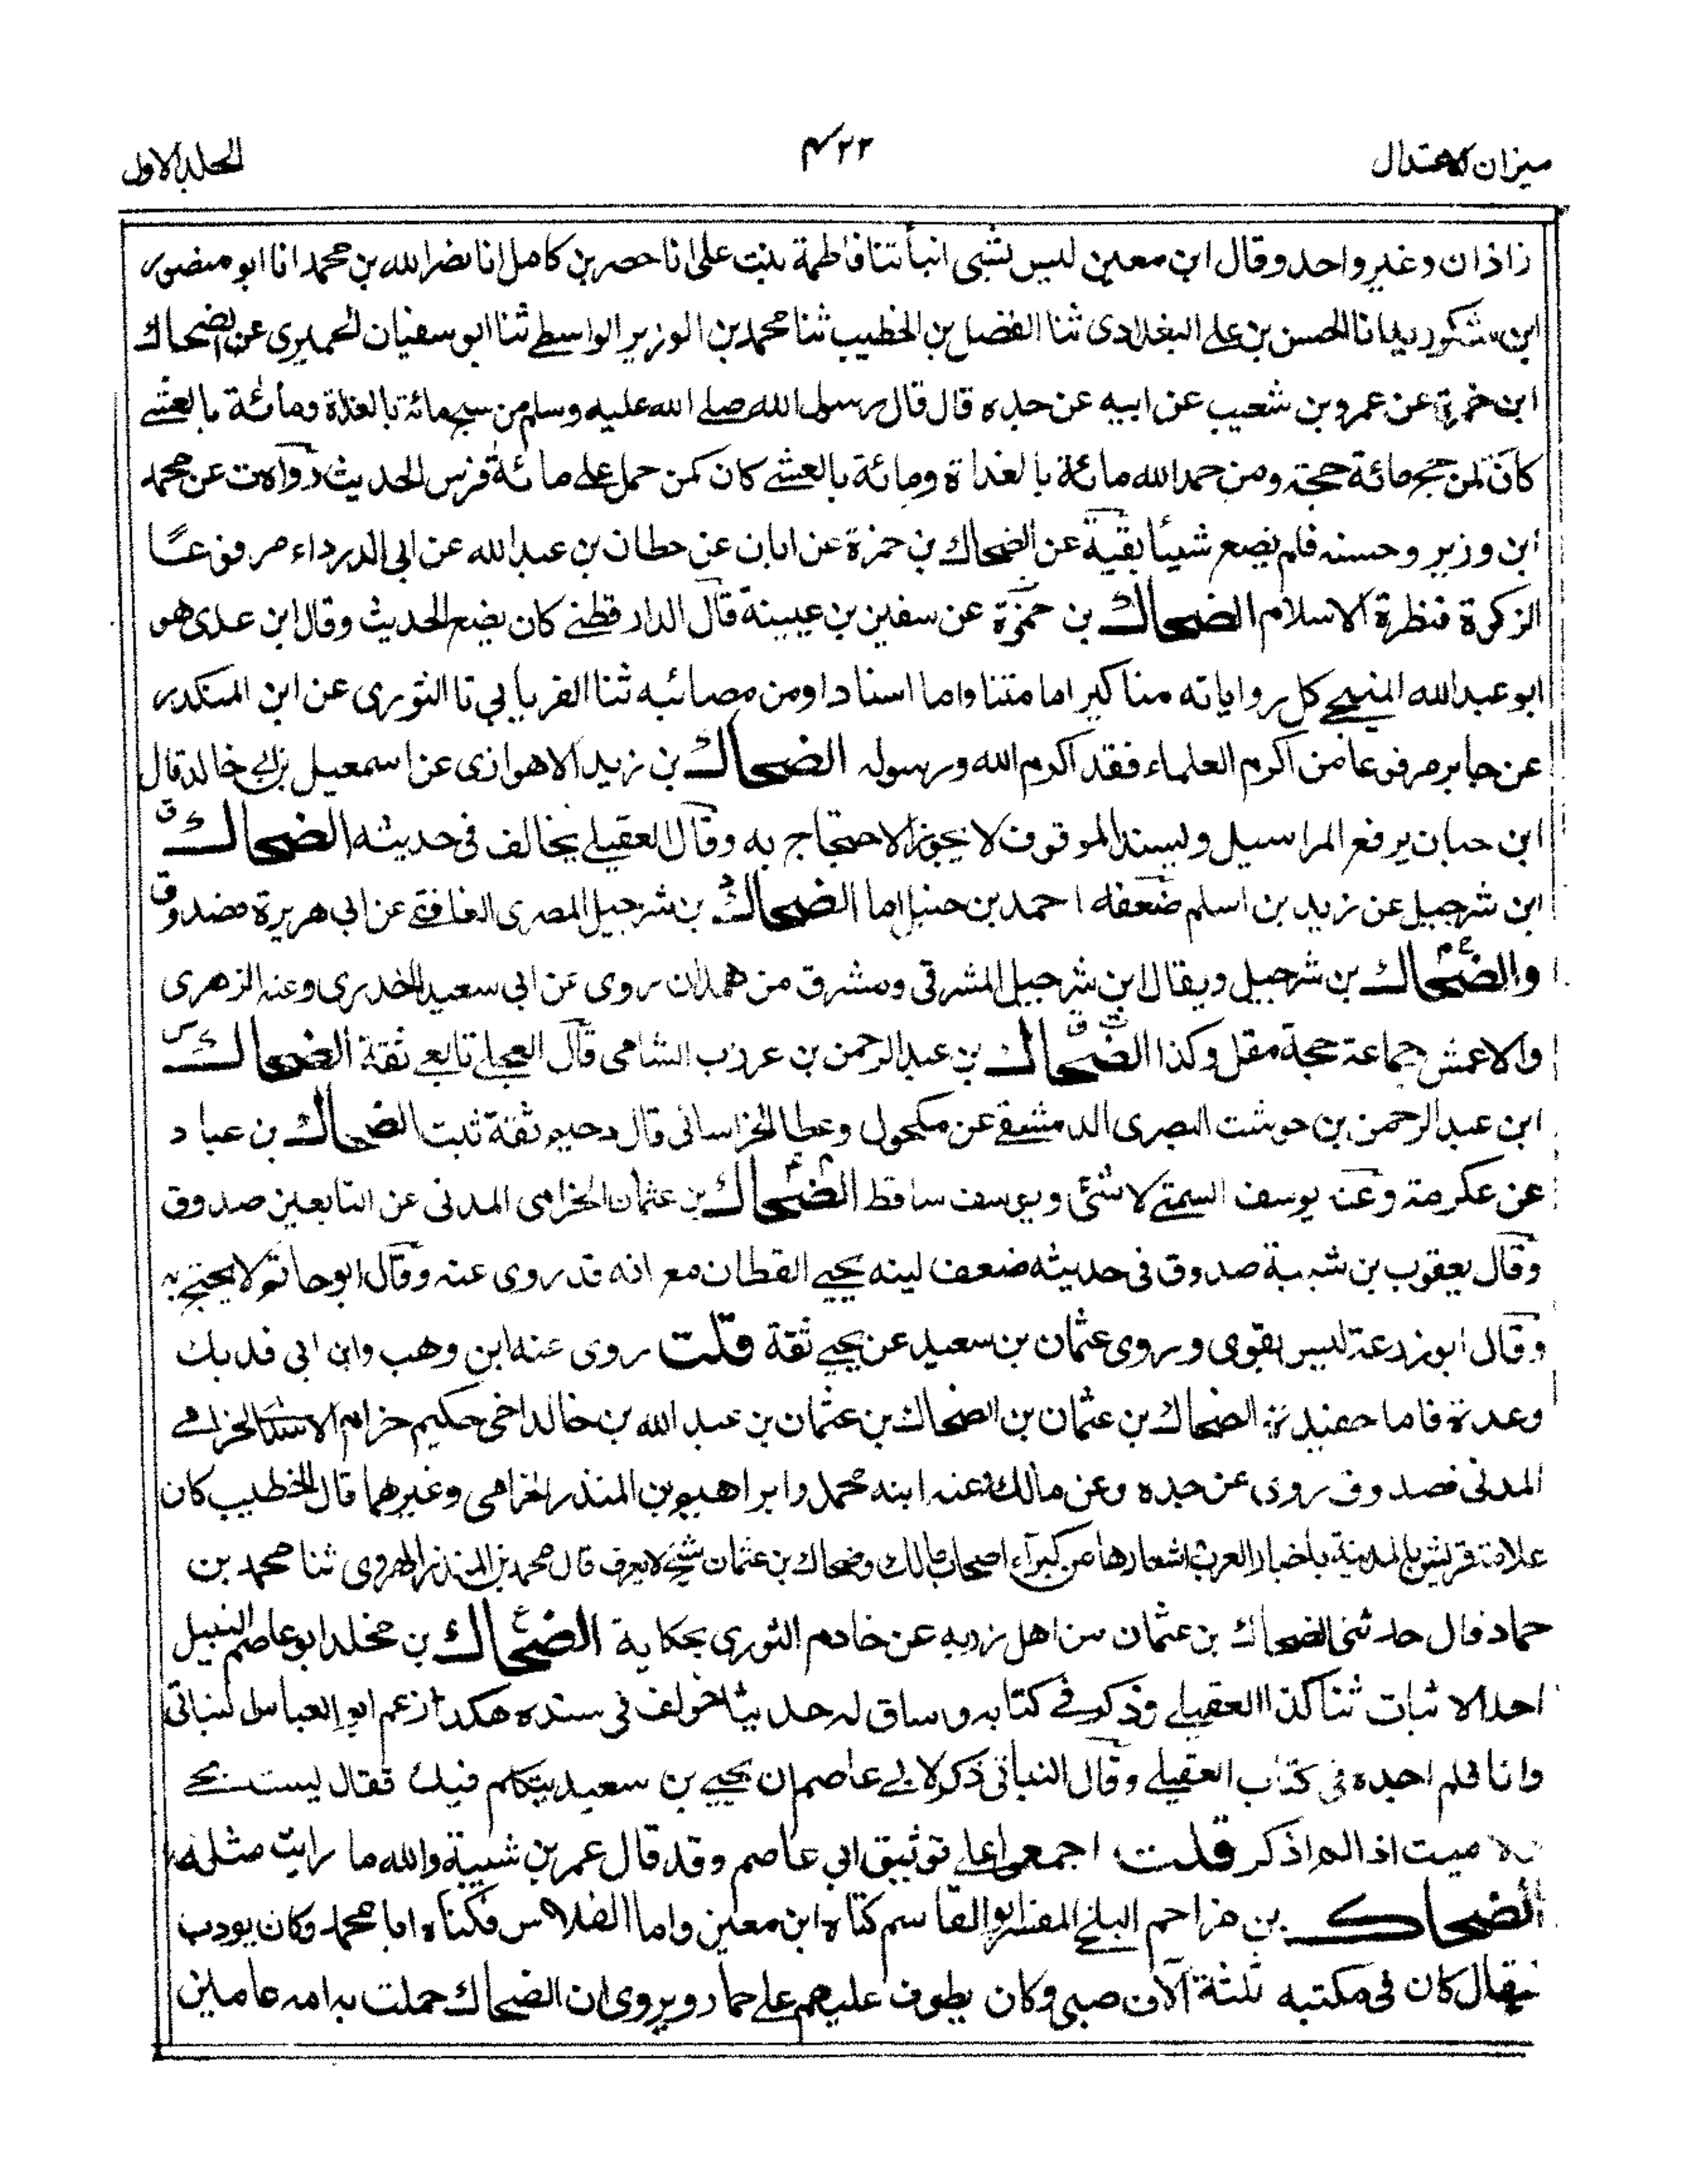 ميزان الاعتدال
٤٢٢
المجلد الاول
زاذان وغير واحد وقال ابن معين ليس بشئ انبأتنا فاطمة بنت على انا انا نصر الله بن محمد انا ابو منصور
ابن انا الحسن بن على البغدادى ثنا الفضل بن الخطيب ثنا محمد بن الوزير الواسطے ثنا ابو سفيان الحميرى عن الضحاك
ابن حمرة عن عمرو بن شعيب عن ابيه عن جده قال قال رسول الله صلے الله عليه وسلم من سبح مائة بالغداة ومائة بالعشے
كان كمن حج مائة حجة ومن حمد الله مائة بالغداة ومائة بالعشے كان كمن حمل على مائة فرس الحديث رواه ت عن محمد
ابن وزير وحسنه فلم يصنع شيئا بقية عن الضحاك بن حمزة عن ابان عن حطان بن عبدالله عن ابى الدرداء مرفوعا
الزكوة قنطرة الاسلام الضحاك بن حمزة عن سفين بن عيينة قال الدارقطنے كان يضع الحديث وقال ابن عدى هو
ابو عبدالله المنبجے كل رواياته مناكير اما متنا واما اسنادا ومن مصائبه ثنا الفريابي نا الثورى عن ابن المنكدر
عن جابر مرفوعا من اكرم العلماء فقد اكرم الله ورسوله الضحاك بن زيد الاهوازى عن اسمعيل بن ابى خالد قال
ابن حبان يرفع المراسيل ويسند الموقوف لا يجوز الاحتجاج به وقال العقيلے يخالف فى حديثه الضحاك
ابن شرحبيل عن زيد بن اسلم ضعفه احمد بن حنبل اما الضحاك بن شرحبيل المصرى الغافقے عن ابى هريرة فصدوق
والضحاك بن شرحبيل ويقال ابن شرحبيل المشرقى ومشرق من همدان روى عن ابى سعيد الخدرى وعنه الزهرى
والاعمش جماعة حجة مقل وكذا الضحاك بن عبدالرحمن بن عرزب الشامى قال العجلے تابعے ثقة الضحاك
ابن عبدالرحمن بن حوشب النصرى الدمشقے عن مكحول وعطا الخراسانى قال دحيم ثقة ثبت الضحاك بن عباد
عن عكرمة وعنه يوسف السمتے لا شئ ويوسف ساقط الضحاك بن عثمان الحزامى المدنى عن التابعين صدوق
وقال يعقوب بن شيبة صدوق فى حديثه ضعف لينه يحيے القطان مع انه قد روى عنه وقال ابو حاتم لا يحتج به
وقال ابو زرعة ليس بقوى وروى عثمان بن سعيد عن يحيے ثقة قلت روى عنه ابن وهب وابن ابى فديك
وعدة فاما حفيده الضحاك بن عثمان بن الضحاك بن عثمان بن عبد الله بن خالد اخى حكيم حزام الاسدى الحزامے
المدنى فصدوق روى عن جده وعن مالك وعنه ابنه محمد وابراهيم بن المنذر الحزامى وغيرهما قال الخطيب كان
علامة قريش بالمدينة باخبار العرب واشعارها من كبراء اصحاب مالك وضحاك بن عثمان شيخ لا يعرف قال محمد بن المنذر الهروى ثنا محمد بن
حماد قال حدثنى الضحاك بن عثمان من اهل عن خادم الثورى بحكاية الضحاك بن مخلد ابو عاصم النبيل
احد الاثبات تناكد العقيلے وذكره فے كتابه وساق له حديثا خولف فى سنده هكذا زعم ابو العباس النباتى
وانا فلم اجده فى كتاب العقيلے وقال النباتى ذكر لابے عاصم ان يحيے بن سعيد يتكلم فيك فقال لست بحے
ولا ميت اذا لم اذكر قلت اجمعوا على توثيق ابى عاصم وقد قال عمر بن شيبة والله ما رايت مثله
الضحاك بن مزاحم البلخے المفسر ابو القاسم كناه ابن معين واما الفلاس فكناه ابا محمد وكان يودب
فيقال كان فى مكتبه ثلثة آلاف صبى وكان يطوف عليهم على حمار ويروى ان الضحاك حملت به امه عامين